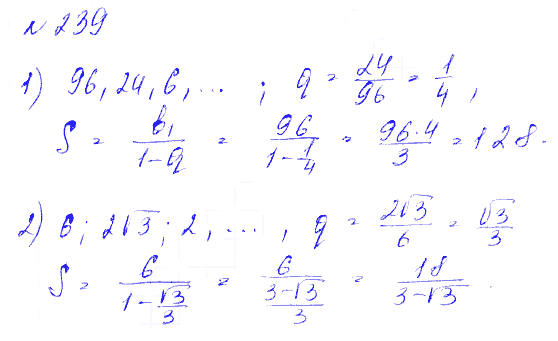 № 239
1) 96, 24, 6, ... ; q = 24/96 = 1/4 ,
S = b₁/(1-q) = 96/(1-1/4) = 96·4/3 = 128.
2) 6; 2√3; 2, ... , q = 2√3/6 = √3/3
S = 6/(1-√3/3) = 6/((3-√3)/3) = 18/(3-√3).